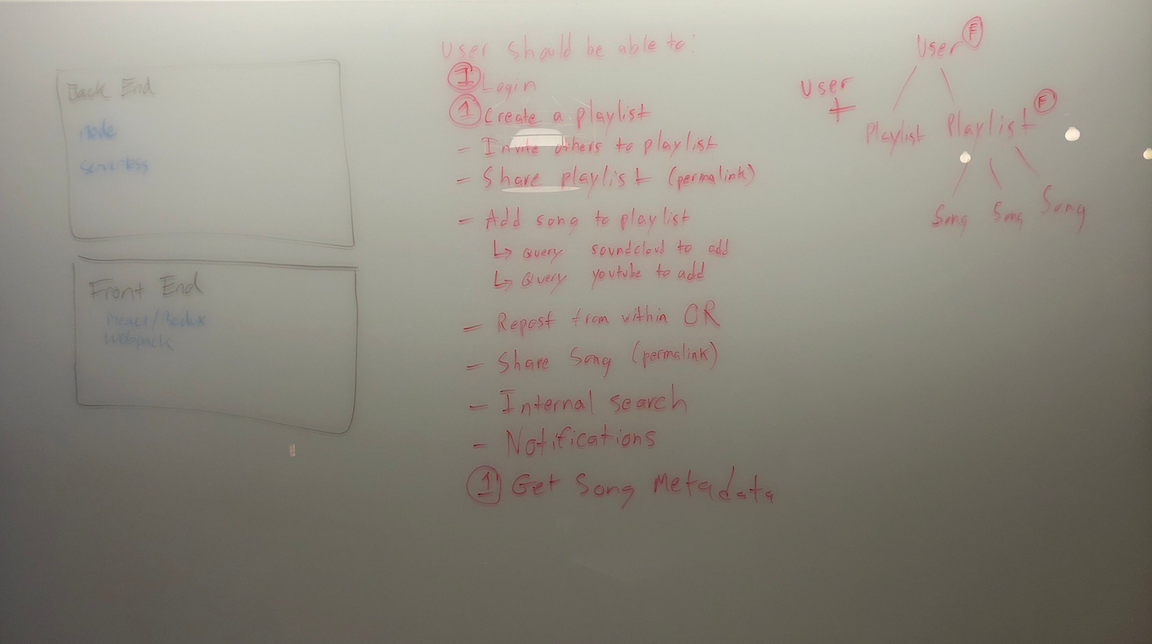 Back End
node
serverless
Front End
React/Redux
webpack
User should be able to:
① Login
① Create a playlist
- Invite others to playlist
- Share playlist (permalink)
- Add song to playlist
↳ Query soundcloud to add
↳ Query youtube to add
- Repost from within OR
- Share Song (permalink)
- Internal search
- Notifications
① Get Song Metadata
User
+
User Ⓕ
Playlist Playlist Ⓕ
Song Song Song